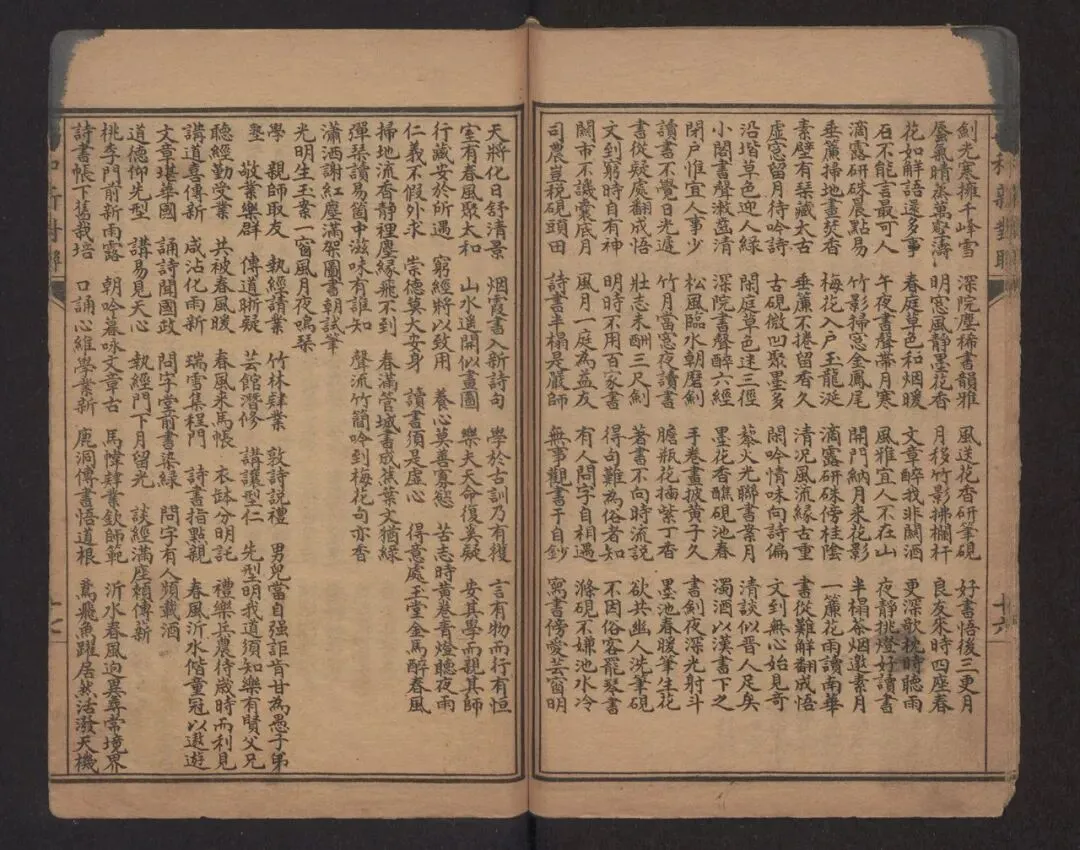 劍光寒擁千峰雪 深院塵稀書韻雅 風送花香研筆硯 好書悟後三更月
蜃氣晴蒸萬壑濤 明窓風靜墨花香 月移竹影拂欄杆 良友來時四座春
花如解語還多事 春庭草色和烟暖 文章醉我非關酒 更深歌枕時聽雨
石不能言最可人 午夜書聲帶月寒 風雅宜人不在山 夜靜挑燈好讀書
滴露研硃晨點易 竹影掃窓金鳳尾 開門納月來花影 半榻茶烟邀素月
垂簾掃地晝焚香 梅花入戶玉龍涎 滴露研硃傍桂陰 一簾花雨讀南華
素壁有琴藏太古 垂簾不捲留香久 清况風流緣古重 書從難解翻成悟
虛窓留月待吟詩 古硯微凹聚墨多 閑吟情味向詩偏 文到無心始見奇
沿堦草色迎人綠 閑庭草色迷三徑 藜火光聯書葉月 清談似晋人足矣
小閣書聲漱齒清 深院書聲醉六經 墨花香醮硯池春 濁酒以漢書下之
閉戶惟宜人事少 松風臨水朝磨劍 手卷畫披黃子久 書劍夜深光射斗
讀書不覺日光遲 竹月當窓夜讀書 膽瓶花插紫丁香 墨池春暖筆生花
書從疑處翻成悟 壯志未酬三尺劍 著書不向時流說 欲共幽人洗筆硯
文到窮時自有神 明時不用百家書 得句難為俗者知 不因俗客罷琴書
市不譏囊底月 風月一庭為益友 有人問字自相過 滌硯不嫌池水冷
司農豈稅硯頭田 詩書半榻是嚴師 無事觀書手自鈔 寫書傍愛芸窗明
天將化日舒清景 烟霞書入新詩句 學於古訓乃有獲 言有物而行有恒
室有春風聚太和 山水遥開似畫圖 樂夫天命復奚疑 安其學而親其師
行藏安於所遇 窮經將以致用 養心莫善寡慾 苦志時黃卷青燈聽夜雨
仁義不假外求 崇德莫大安身 讀書須是虛心 得意處玉堂金馬醉春風
掃地流香靜裡塵緣飛不到 春滿管城書成蕉葉文猶綠
彈琴讀易箇中滋味有誰知 聲流竹簡吟到梅花句亦香
瀟洒謝紅塵滿架圖書朝試筆
光明生玉案一窗風月夜鳴琴
學 親師取友 執經請業 竹林肄業 敦詩說禮 男兒當自强詎肯甘為愚子弟
塾 敬業樂群 傳道晰疑 芸館潛修 講讓型仁 先型明我道須知樂有賢父兄
聽經勤受業 共被春風暖 春風來馬帳 衣缽分明託 禮樂兵農待歲時而利見
講道喜傳新 咸沾化雨新 瑞雪集程門 詩書指點親 春風沂水偕童冠以遨遊
文章堪華國 誦詩聞國政 問字堂前書染綠 問字有人頻載酒
道德仰先型 講易見天心 執經門下月留光 談經滿座頼傳薪
桃李門前新雨露 朝吟暮咏文章古 馬幃肄業欽師範 沂水春風迥異尋常境界
詩書帳下舊栽培 口誦心維學業新 鹿洞傳書悟道根 鳶飛魚躍居然活潑天機